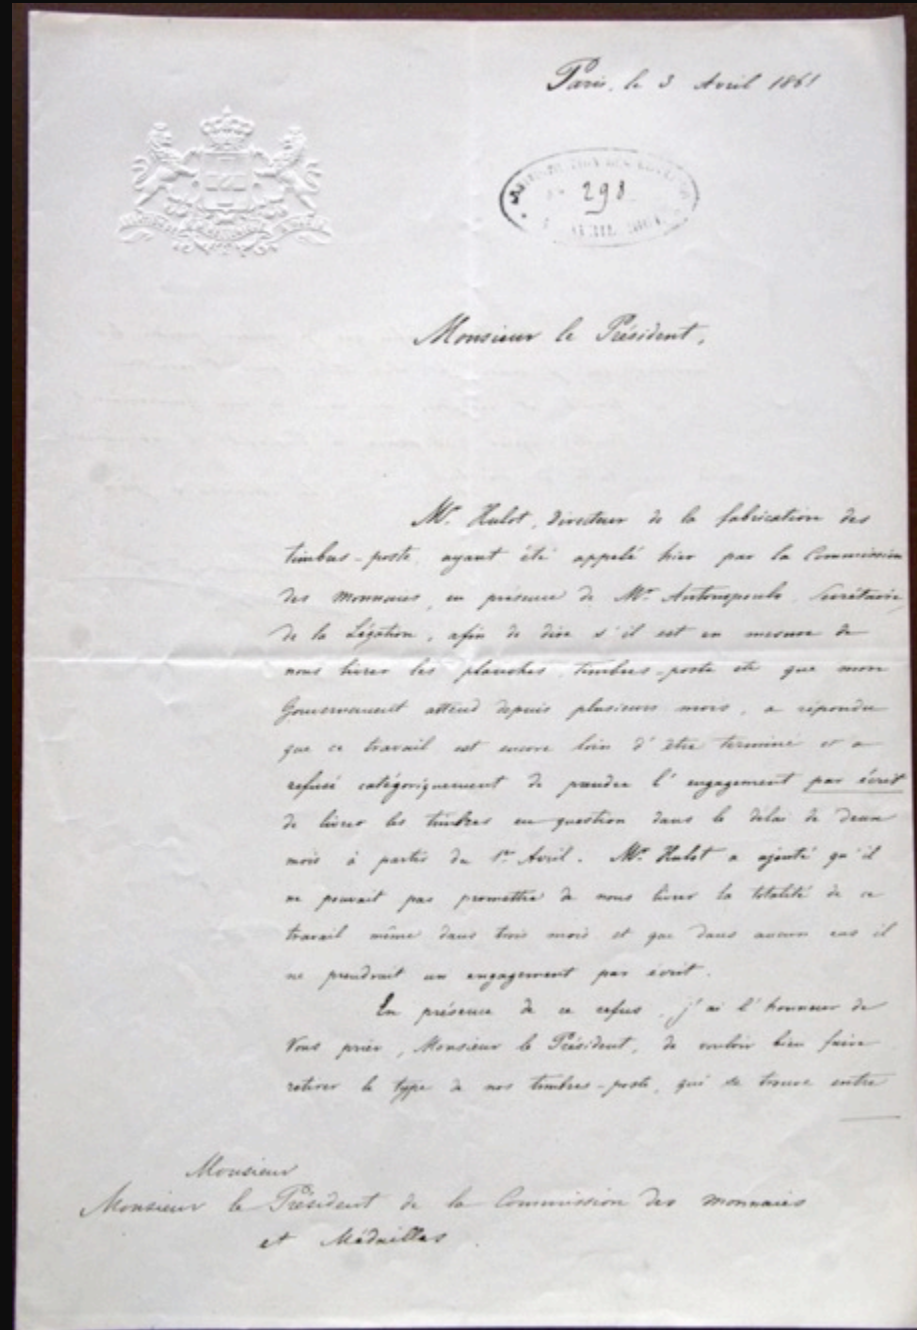 Paris, le 3 Avril 1861
298
AVRIL 1861
Monsieur le Président,
Mr. Hulot, directeur de la fabrication des
timbres-poste, ayant été appelé hier par la Commission
des monnaies, en présence de Mr. Antonopoulo, Secrétaire
de la Légation, afin de dire s'il est en mesure de
nous livrer les planches, timbres-poste etc que mon
Gouvernement attend depuis plusieurs mois, a répondu
que ce travail est encore loin d'être terminé et a
refusé catégoriquement de prendre l'engagement par écrit
de livrer les timbres en question dans le délai de deux
mois à partir du 1er Avril. Mr. Hulot a ajouté qu'il
ne pouvait pas promettre de nous livrer la totalité de ce
travail même dans trois mois et que dans aucun cas il
ne prendrait un engagement par écrit.
En présence de ce refus, j'ai l'honneur de
Vous prier, Monsieur le Président, de vouloir bien faire
retirer le type de nos timbres-poste, qui se trouve entre
Monsieur
Monsieur le Président de la Commission des monnaies
et Médailles.